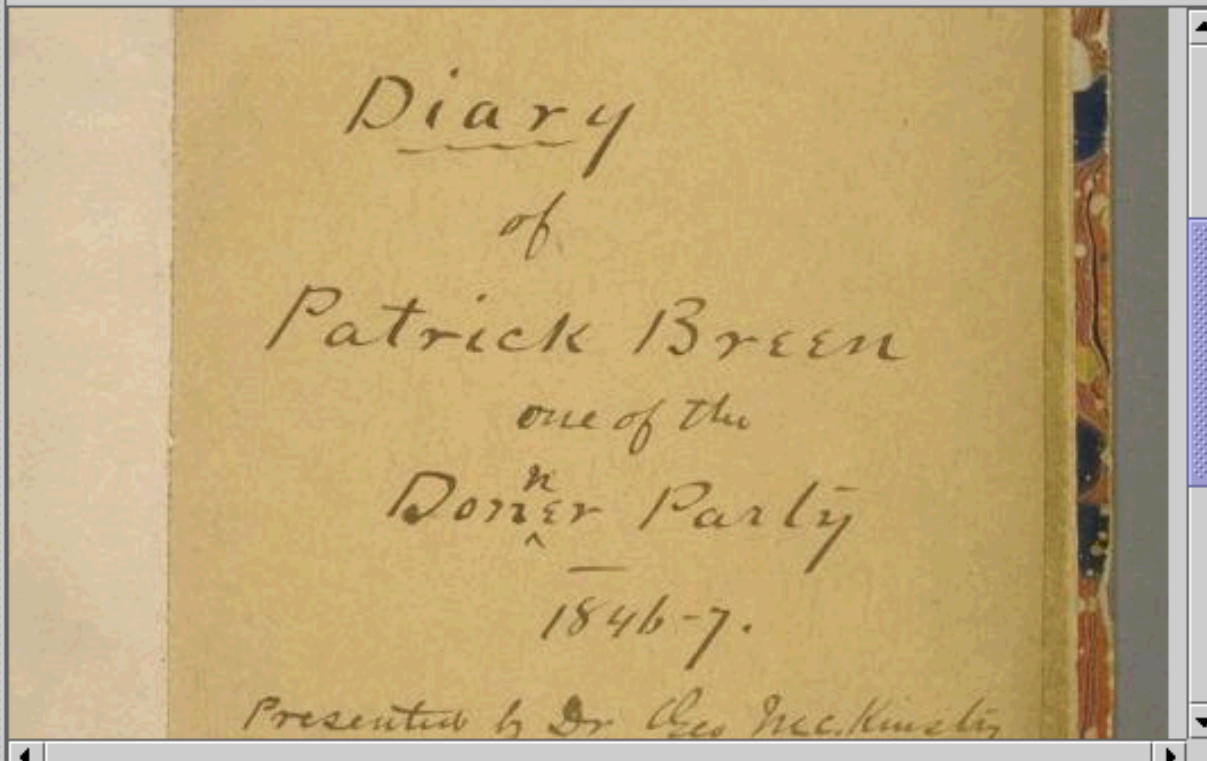 Diary
of
Patrick Breen
one of the
Donner Party
1846-7.
Presented by Dr Geo Mc.Kinstry